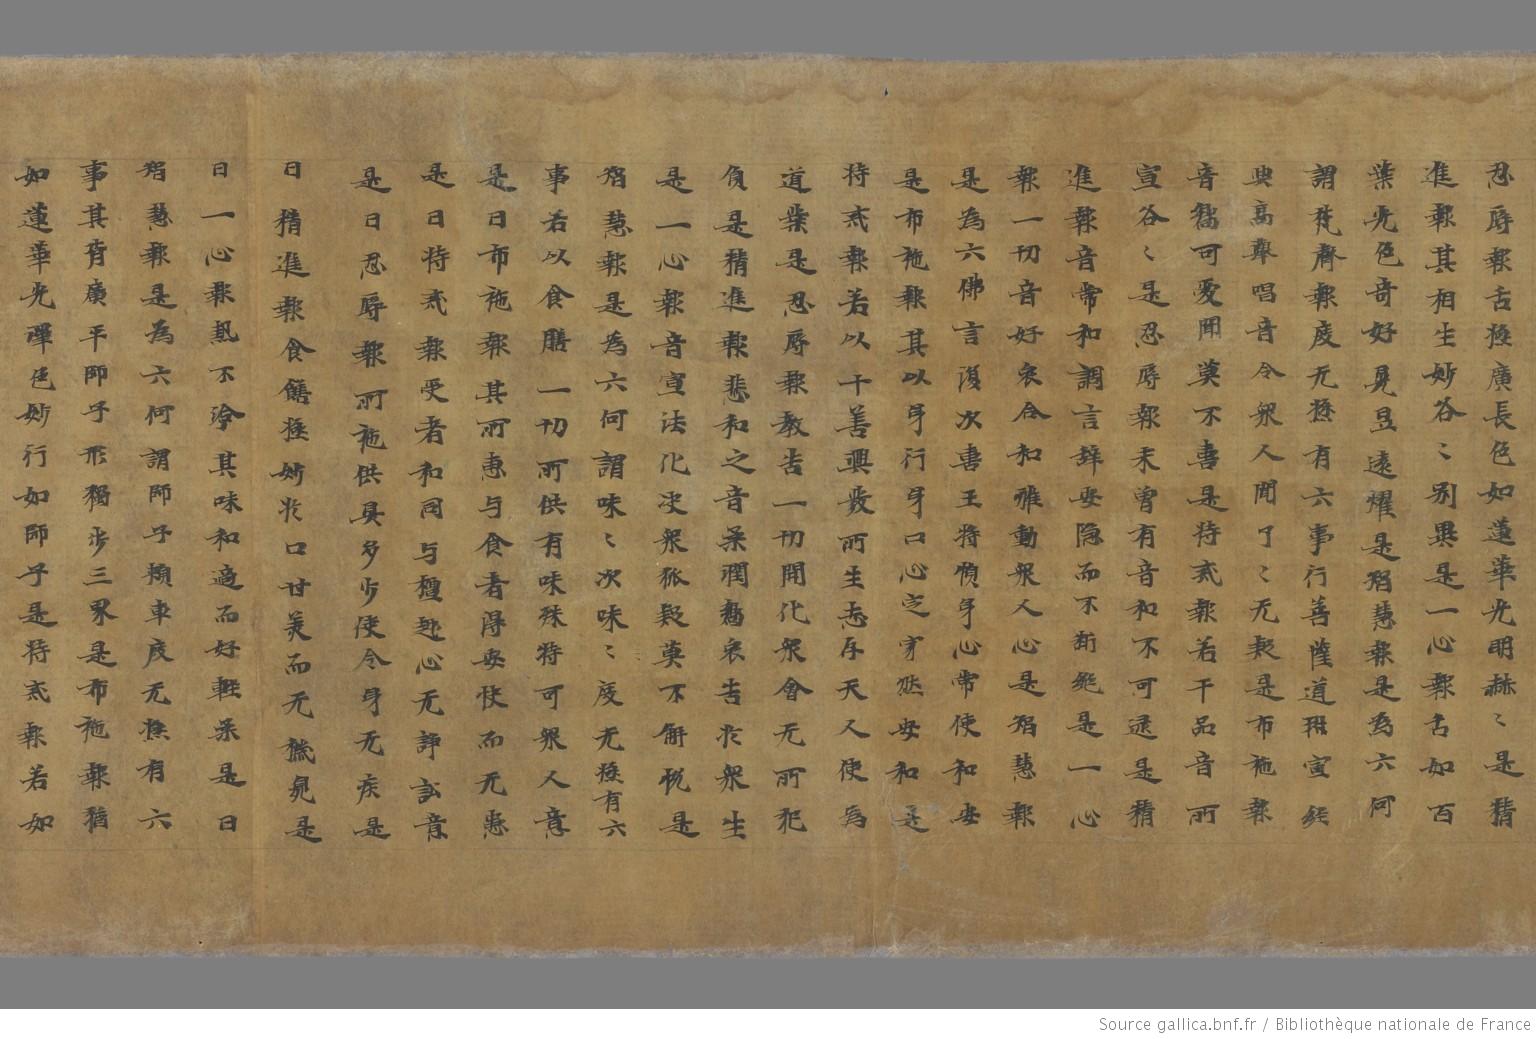 忍辱報舌極廣長色如蓮華光明赫〻是精
進報其相生妙各〻別異是一心報舌如百
葉光色奇好晃昱遠耀是智慧報是為六何
謂梵聲報度无極有六事行善薩道班宣經
典高聲唱音令衆人聞了〻无疑是布施報
音響可愛聞莫不喜是持戒報若干品音所
宣各〻是忍辱報未曾有音和不可逮是精
進報音常和調言辞安隐而不斷絕是一心
報一切音好哀合和雅動衆人心是智慧報
是為六佛言復次喜王將順身心常使和安
是布施報其以身行身口心定寂然安和是
持戒報若以十善興發所生志存天人使為
道業是忍辱報教告一切開化衆會无所犯
負是精進報悲和之音柔潤哀告於衆生
是一心報音宣法化决衆狐疑莫不解恱是
智慧報是為六何謂味〻次味〻度无極有六
事若以食膳一切所供有味殊特可衆人意
是曰布施報其所惠与食者得安快而无患
是曰持戒報受者和同与擅趣心无諍訟音
是曰忍辱報所施供具多少使令身无疾是
曰精進報食饍極妙於口甘美而无是
曰一心報熱不冷其味和適而好軽柔是曰
智慧報是為六何謂師子頰車度无極有六
事其脊廣平師子形獨步三界是布施報猶
如蓮華光暉色妙行如師子是持戒報若如